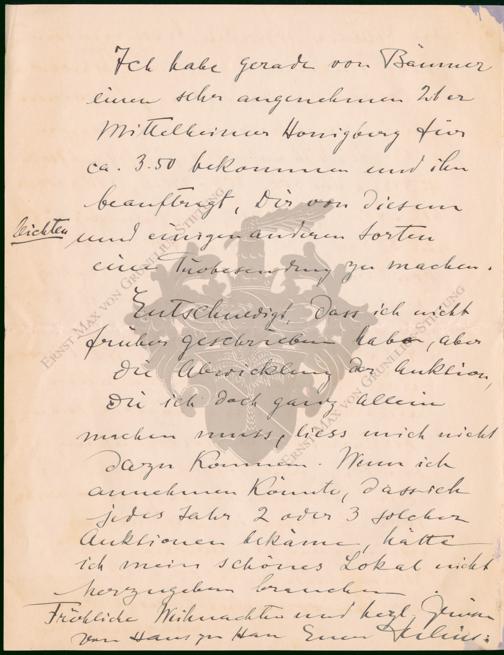 Ich habe gerade von Bäumer
einen sehr angenehmen 26er
Mittelheimer Honigberg für
ca. 3.50 bekommen und ihn
beauftragt, Dir von diesem
und einigen anderen leichten Sorten
eine Probesendung zu machen.
Entschuldigt, dass ich nicht
früher geschrieben habe, aber
die Abwicklung der Auktion,
die ich doch ganz allein
machen muss, liess mich nicht
dazu kommen. Wenn ich
annehmen könnte, dass ich
jedes Jahr 2 oder 3 solcher
Auktionen bekäme, hätte
ich mein schönes Lokal nicht
herzugeben brauchen.
Fröhliche Weihnachten und herzl. Grüsse
von Haus zu Haus Euer
ERNST MAX VON GRUNELIUS-STIFTUNG
ERNST MAX VON GRUNELIUS-STIFTUNG